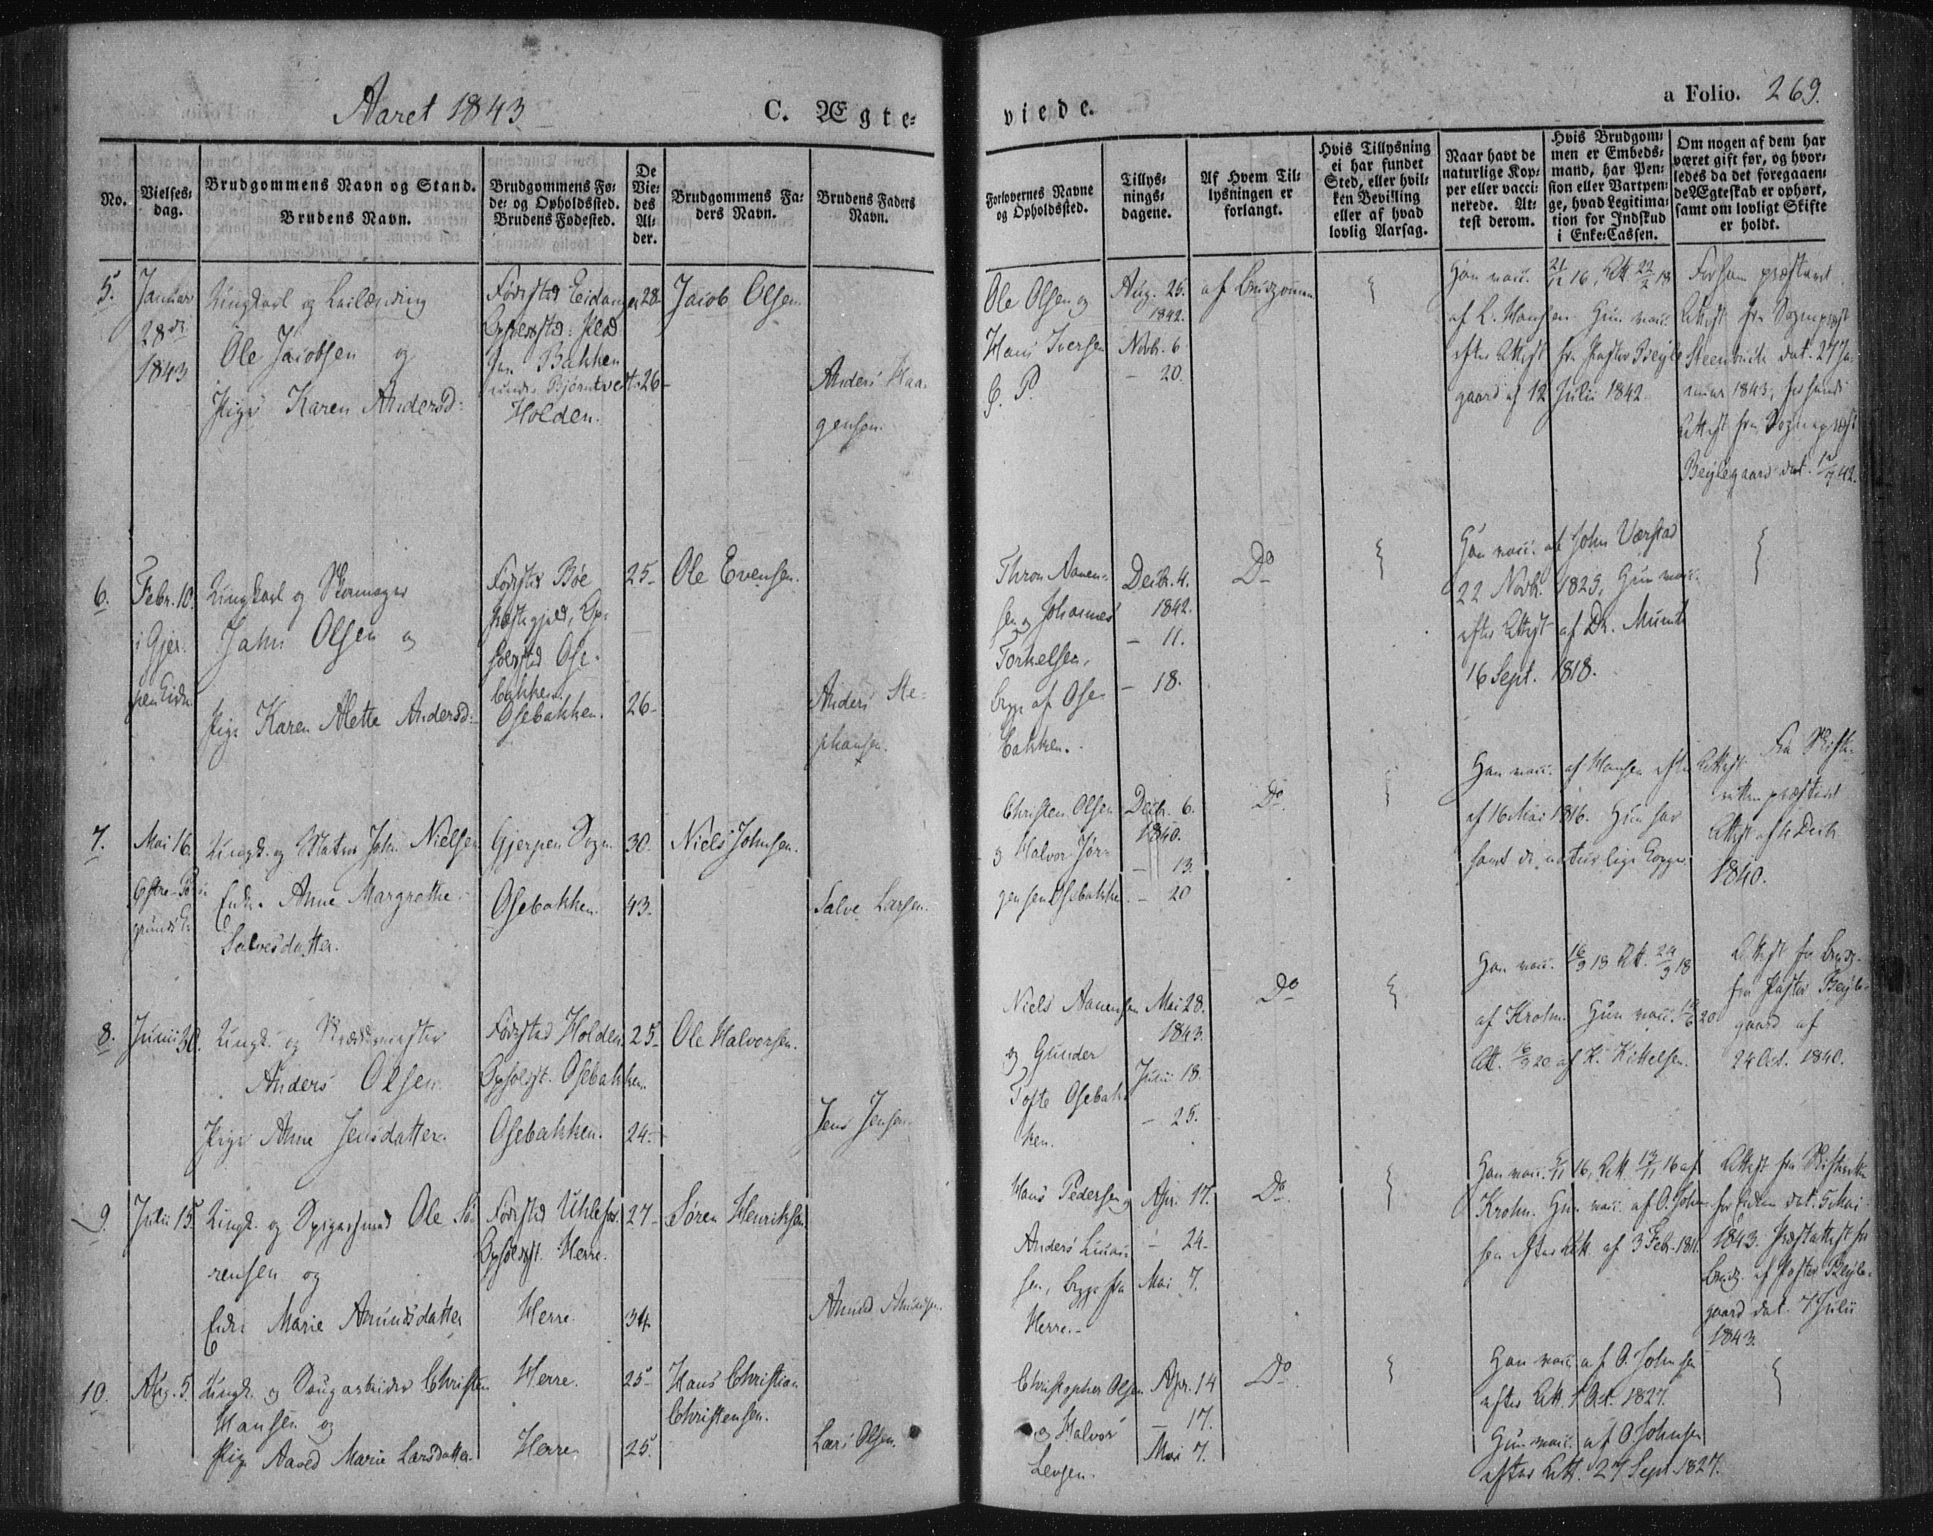 Aaret 1843
C. Ægte-
viede.
a Folio. 269.
No.
Vielses-
dag.
Brudgommens Navn og Stand.
Brudens Navn.
Brudgommens Fø-
de- og Opholdssted.
Brudens Fødested.
De
Vie-
des
Al-
der.
Brudgommens Fa-
ders Navn.
Brudens Faders
Navn.
Forlovernes Navne
og Opholdssted.
Tillys-
nings-
dagene.
Af Hvem Til-
lysningen er
forlangt.
Hvis Tillysning
ei har fundet
Sted, eller hvil-
ken Bevilling
eller af hvad
lovlig Aarsag.
Naar havt de
naturlige Kop-
per eller vacci-
nerede. At-
test derom.
Hvis Brudgom-
men er Embeds-
mand, har Pen-
sion eller Vartpen-
ge, hvad Legitima-
tion for Indskud
i Enke-Cassen.
Om nogen af dem har
været gift før, og hvor-
ledes da det foregaaen-
de Ægteskab er ophørt,
samt om lovligt Skifte
er holdt.
5.
Januar
28de
1843
Ungkarl og Leilænding
Ole Jacobsen og
Pige Karen Andersd:
Fødested Eidanger
Opholdssted:
Bakken
Bjørntvet
Holden.
28
26
Jacob Olsen
Anders Haa-
gensen.
Ole Olsen og
Hans Iversen
Aug. 26.
1842.
Novb. 6
- 20.
af Brudgommen
Han vacc. 21/12 16, Att. 22/2 18
af L. Hansen. Hun vacc.
efter Attest fra Pastor Beyle-
gaard af 12 Julii 1842.
For ham præsteret
Attest fra Sognepræst
Steenbuch dat. 27 Ja-
nuar 1843, for hende
Attest fra Sognepræst
Beylegaard dat. 12/7 42.
6.
Febr. 10.
i Gjer-
pen Kirke
Ungkarl og Skomager
John Olsen og
Pige Karen Alette Andersd:
Fødested Bøe
Præstegjeld, Op-
holdssted Ose-
bakken.
Osebakken.
25
26
Ole Evensen.
Anders Ste-
phansen.
Thron Aanen-
sen og Johannes
Torkelsen,
begge af Ose-
bakken.
Decbr. 4.
1842.
- 11.
- 18.
Do
Han vacc. af John Værstad
22 Novb. 1825, Hun vacc.
efter Attest af Dr. Munch
16 Sept. 1818.
7.
Mai 16.
Østre Po-
Ungk. og Matros John Nielsen
Enke Anne Margrethe
Salvesdatter.
Gjerpen Sogn
Osebakken.
30.
43.
Niels Johnsen.
Salve Larsen.
Christen Olsen
og Halvor Jør-
gensen Osebakken
Decbr. 6.
1840.
- 13.
- 20
Do
Han vacc. af Hansen efter Attest
af 16 Mai 1816. Hun har
havt de naturlige Kopper.
Fra Skifte-
retten præsteret
Attest af 4 Decb
1840.
8.
Junii 30.
Ungk. og Skræddermester
Anders Olsen
Pige Anne Jensdatter.
Fødested Holden
Opholdst. Osebakken.
Osebakken.
25
24
Ole Halvorsen.
Jens Jensen.
Niels Aanensen
og Gunder
Tofte Osebak-
ken.
Mai 28.
1843.
Julii 18.
- 25.
Do
Han vacc. 16/9 18 Att. 24/9 18
af Krohn. Hun vacc.
af H. Kittelsen.
Attest for Brudg.
fra Pastor Beyle-
gaard af
24 Oct. 1840.
9.
Julii 15.
Ungk. og Spigersmed Ole Sø-
rensen og
Enke Marie Amundsdatter
Fødested Uhlefos.
Opholdst. Herre.
Herre.
27
34.
Søren Henriksen
Amund Amundsen.
Hans Pedersen og
Anders
sen, begge fra
Herre.
Apr. 17.
- 24.
Mai 7.
Do
af
Krohn. Hun vacc. af O. John-
sen efter Att. af 3 Feb. 1811.
Attest fra Skifteretten
for Enken dat. 5 Mai
1843. Præsteattest for
Brudg. af Pastor Beyle-
gaard dat. 7 Julii
1843.
10.
Aug. 5.
Ungk. og Saugarbeider Christen
Hansen og
Pige Aaved Marie Larsdatter.
Herre.
Herre
25
25
Hans Christian
Christensen.
Lars Olsen.
Christopher Olsen
og Halvor
Levsen.
Apr. 14
- 17.
Mai 7.
Do
Han vacc. af O. Johnsen
efter Att. 1 Oct. 1827.
Hun vacc. af O. Johnsen
efter Att. 27 Sept. 1827.